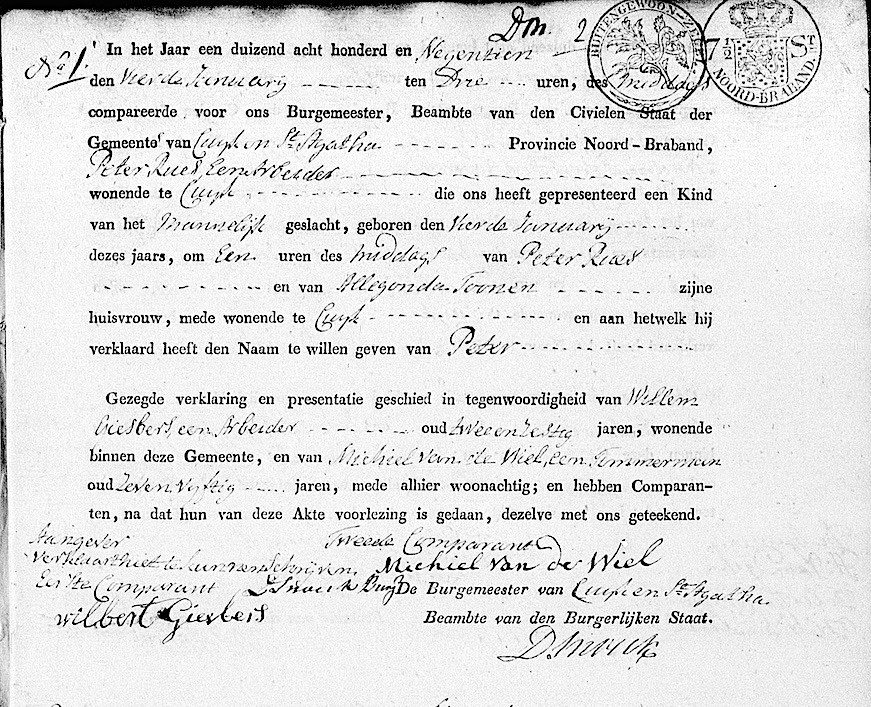 Dm. 2
BUITENGEWOON-ZEGEL
7½ ST
NOORD-BRABAND.
No 1.
In het Jaar een duizend acht honderd en Negentien
den vierde January ten Drie uren, des middags
compareerde voor ons Burgemeester, Beambte van den Civielen Staat der
Gemeente van Cuyk en St. Agatha Provincie Noord-Braband,
Peter Rues, Een Arbeider
wonende te Cuyk die ons heeft gepresenteerd een Kind
van het Mannelijk geslacht, geboren den vierde January
dezes jaars, om Een uren des middags van Peter Rues
en van Allegonda Toonen zijne
huisvrouw, mede wonende te Cuyk en aan hetwelk hij
verklaard heeft den Naam te willen geven van Peter
Gezegde verklaring en presentatie geschied in tegenwoordigheid van Willem
Giesbers, een Arbeider oud twee en zestig jaren, wonende
binnen deze Gemeente, en van Michiel van de Wiel, een Timmerman
oud zeven vyftig jaren, mede alhier woonachtig; en hebben Comparan-
ten, na dat hun van deze Akte voorlezing is gedaan, dezelve met ons geteekend.
Aangever Tweede Comparant
verklaart niet te kunnen schrijven Michiel van de Wiel
Eerste Comparant De Burgemeester van Cuyk en St. Agatha.
wilbert Giesbers Beambte van den Burgerlijken Staat.